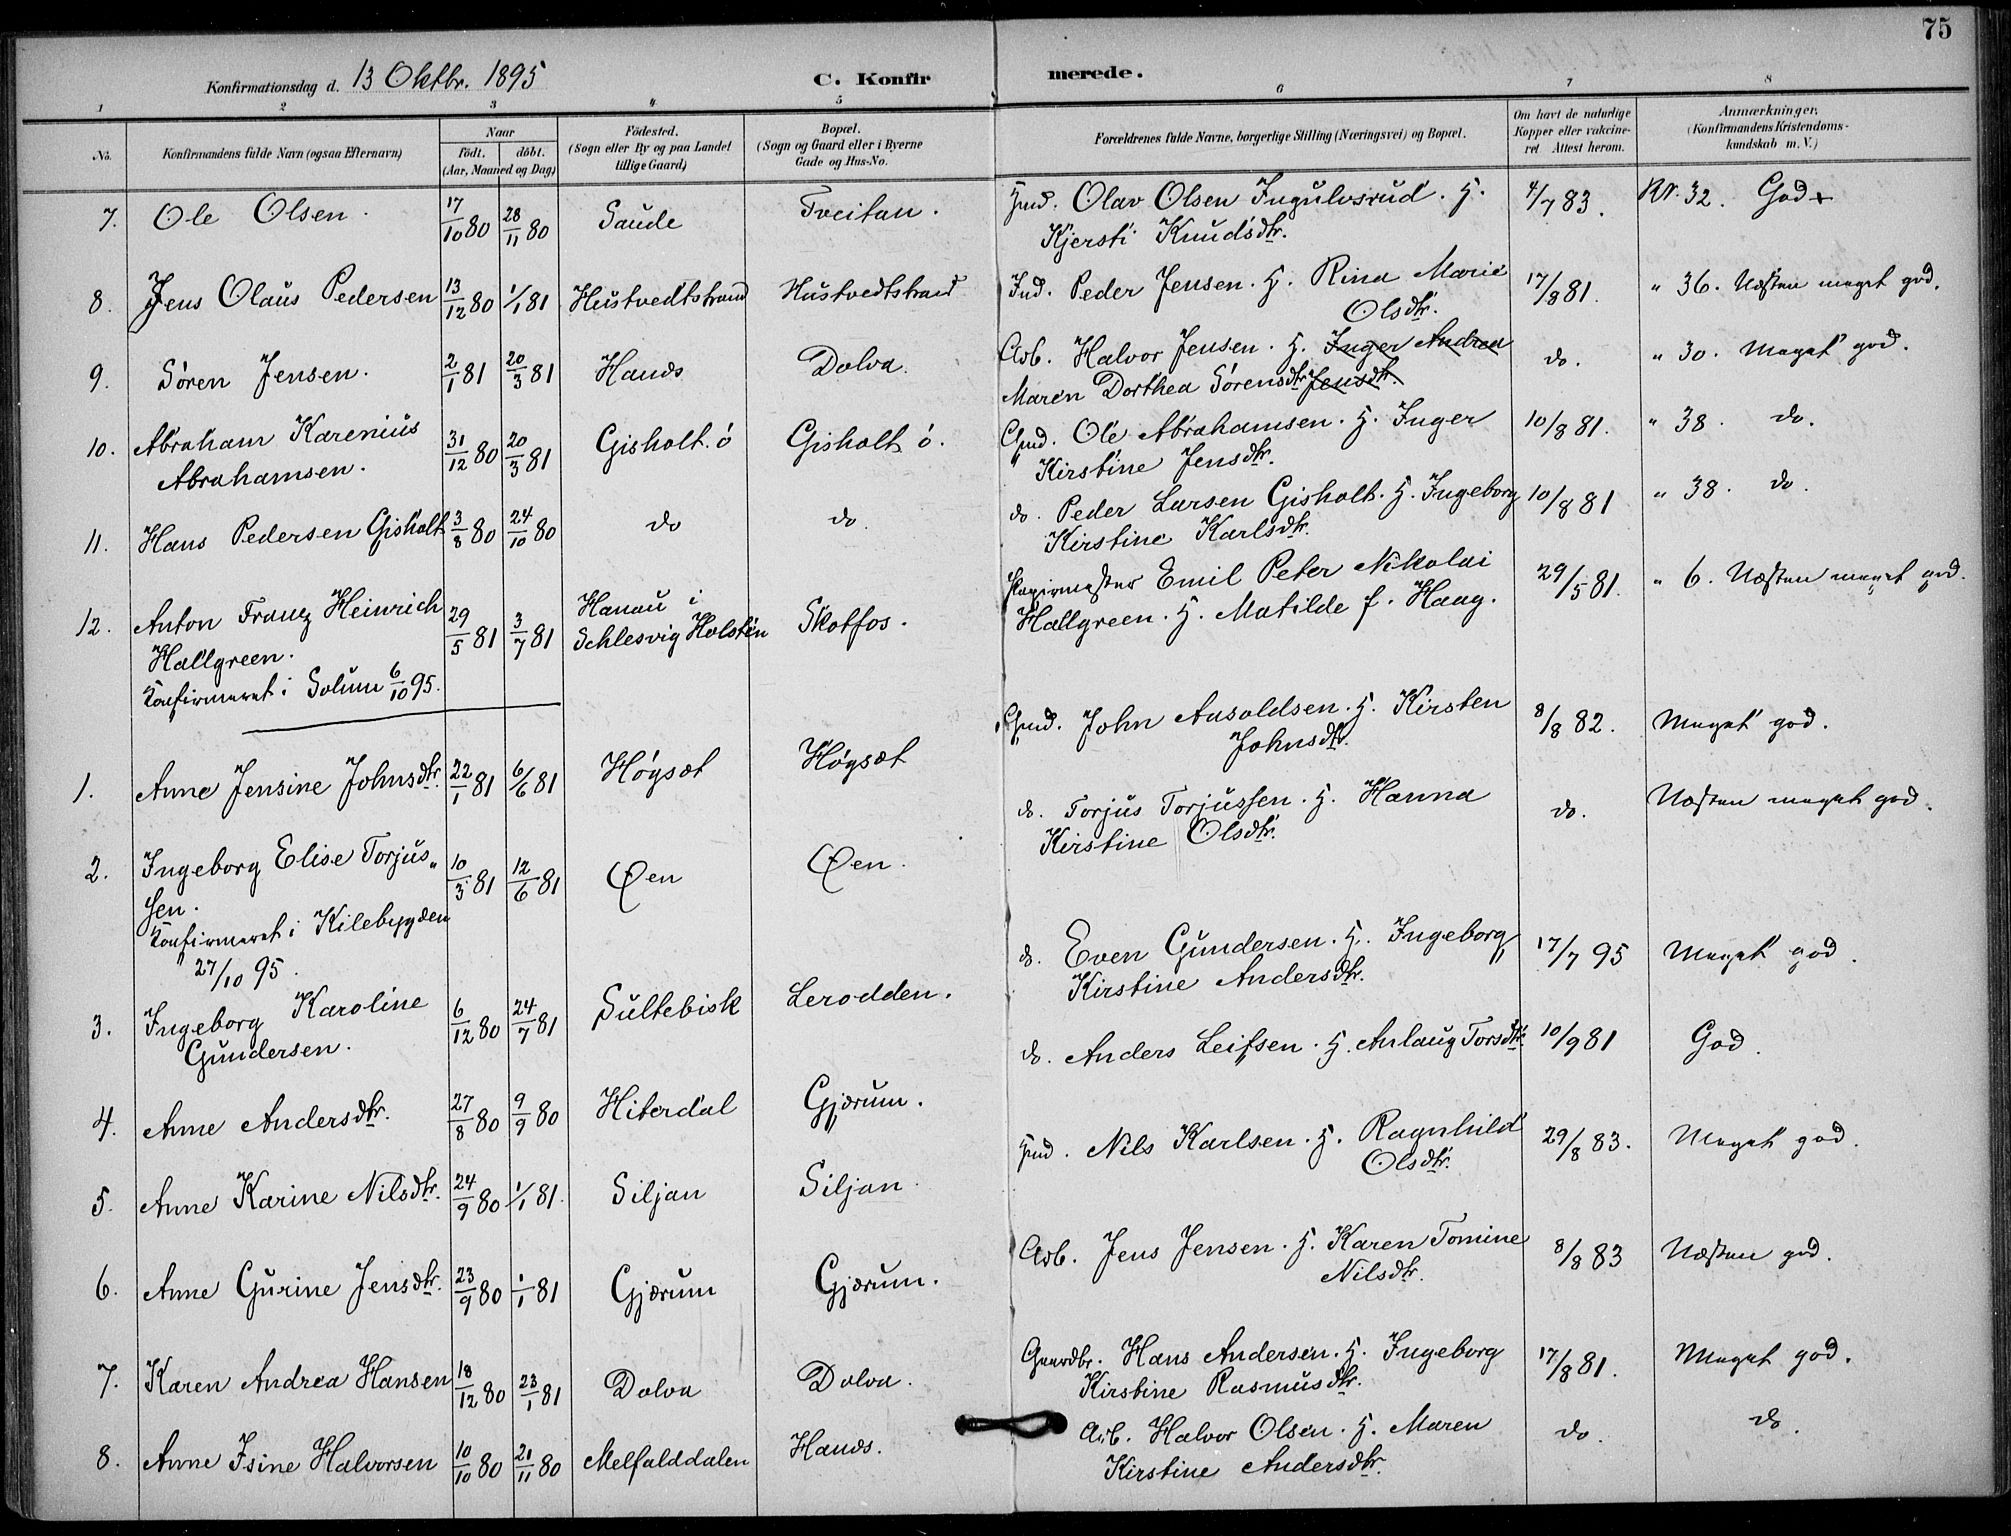 75
Konfirmationsdag d. 13 Oktbr. 1895 C. Konfirmerede.
1 2 3 4 5 6 7 8
No. Konfirmandens fulde Navn (ogsaa Efternavn) Naar Födt. döbt. (Aar, Maaned og Dag) Födested. (Sogn eller By og paa Landet tillige Gaard) Bopæl. (Sogn og Gaard eller i Byerne Gade og Hus-No. Forældrenes fulde Navne, borgerlige Stilling (Næringsvei) og Bopæl. Om havt de naturlige Kopper eller vakcineret Attest herom. Anmærkninger. (Konfirmandens Kristendomskundskab m. V.)
7. Ole Olsen. 17/10 80 28/11 80 Saude Tveitan. Olav Olsen Ingulvsrud. H. 4/7 83. Nr. 32. God
Kjersti Knudsdtr.
8. Jens Olaus Pedersen 13/12 80 1/1 81 Hustvedtstrand Hustvedtstrand Ind. Peder Jensen. H. Rina Marie 17/8 81. " 36. Næsten meget god.
Olsdtr.
9. Sören Jensen. 2/1 81 20/3 81 Hauds Dolva. Arb. Halvor Jensen. H. Inger Andrea do. " 30. Meget god.
Maren Dorthea Sörensdtr. Jensdtr.
10. Abraham Karenius 31/12 80 20/3 81 Gisholt ö Gisholt ö. Gjmd. Ole Abrahamsen. H. Inger 10/8 81. " 38. do.
Abrahamsen. Kirstine Jensdtr.
11. Hans Pedersen Gisholt 3/8 80 24/10 80 do do. do. Peder Larsen Gisholt. H. Ingeborg 10/8 81 " 38. do.
Kirstine Karlsdtr.
12. Anton Franz Heinrich 29/5 81 3/7 81 Hanau i Skotfos. Papirmester Emil Peter Nikolai 29/5 81. " 6. Næsten meget god.
Hallgreen. Schlesvig Holsten Hallgreen. H. Matilde f. Haag.
Konfirmeret i Solum 6/10 95.
1. Anne Jensine Johnsdtr. 22/1 81 6/6 81 Høgsæt Høgsæt Gjmd. John Ansoldsen. H. Kirsten 8/8 82. Meget god.
Johnsdtr.
2. Ingeborg Elise Torjus- 10/3 81 12/6 81 Øen Øen. do. Torjus Torjussen. H. Hanna do. Næsten meget god.
sen. Kirstine Olsdtr.
Konfirmeret i Kilebygden
27/10 95.
3. Ingeborg Karoline 6/12 80 24/7 81 Sultebisk Lerodden. do. Even Gundersen. H. Ingeborg 17/7 95 Meget god.
Gundersen. Kirstine Andersdtr.
4. Anne Andersdtr. 27/8 80 9/9 80 Hiterdal Gjærum. do. Anders Leifsen. H. Anlaug Torsdtr. 10/9 81 God.
5. Anne Karine Nilsdtr. 24/9 80 1/1 81. Siljan Siljan. Nils Karlsen. H. Ragnhild 29/8 83. Meget god.
Olsdtr.
6. Anne Gurine Jensdtr. 23/9 80 1/1 81 Gjærum Gjærum. Arb. Jens Jensen. H. Karen Tomine 8/8 83 Næsten god.
Nilsdtr.
7. Karen Andrea Hansen 18/12 80 23/1 81 Dolva Dolva. Gaardbr. Hans Andersen. H. Ingeborg 17/8 81. Meget god.
Kirstine Rasmusdtr.
8. Anne Isine Halvorsen 10/10 80 21/11 80 Melfalddalen Hauds. Arb. Halvor Olsen. H. Maren do. do.
Kirstine Andersdtr.